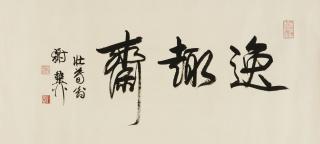 逸趣齋
壯暮翁
謝稚柳